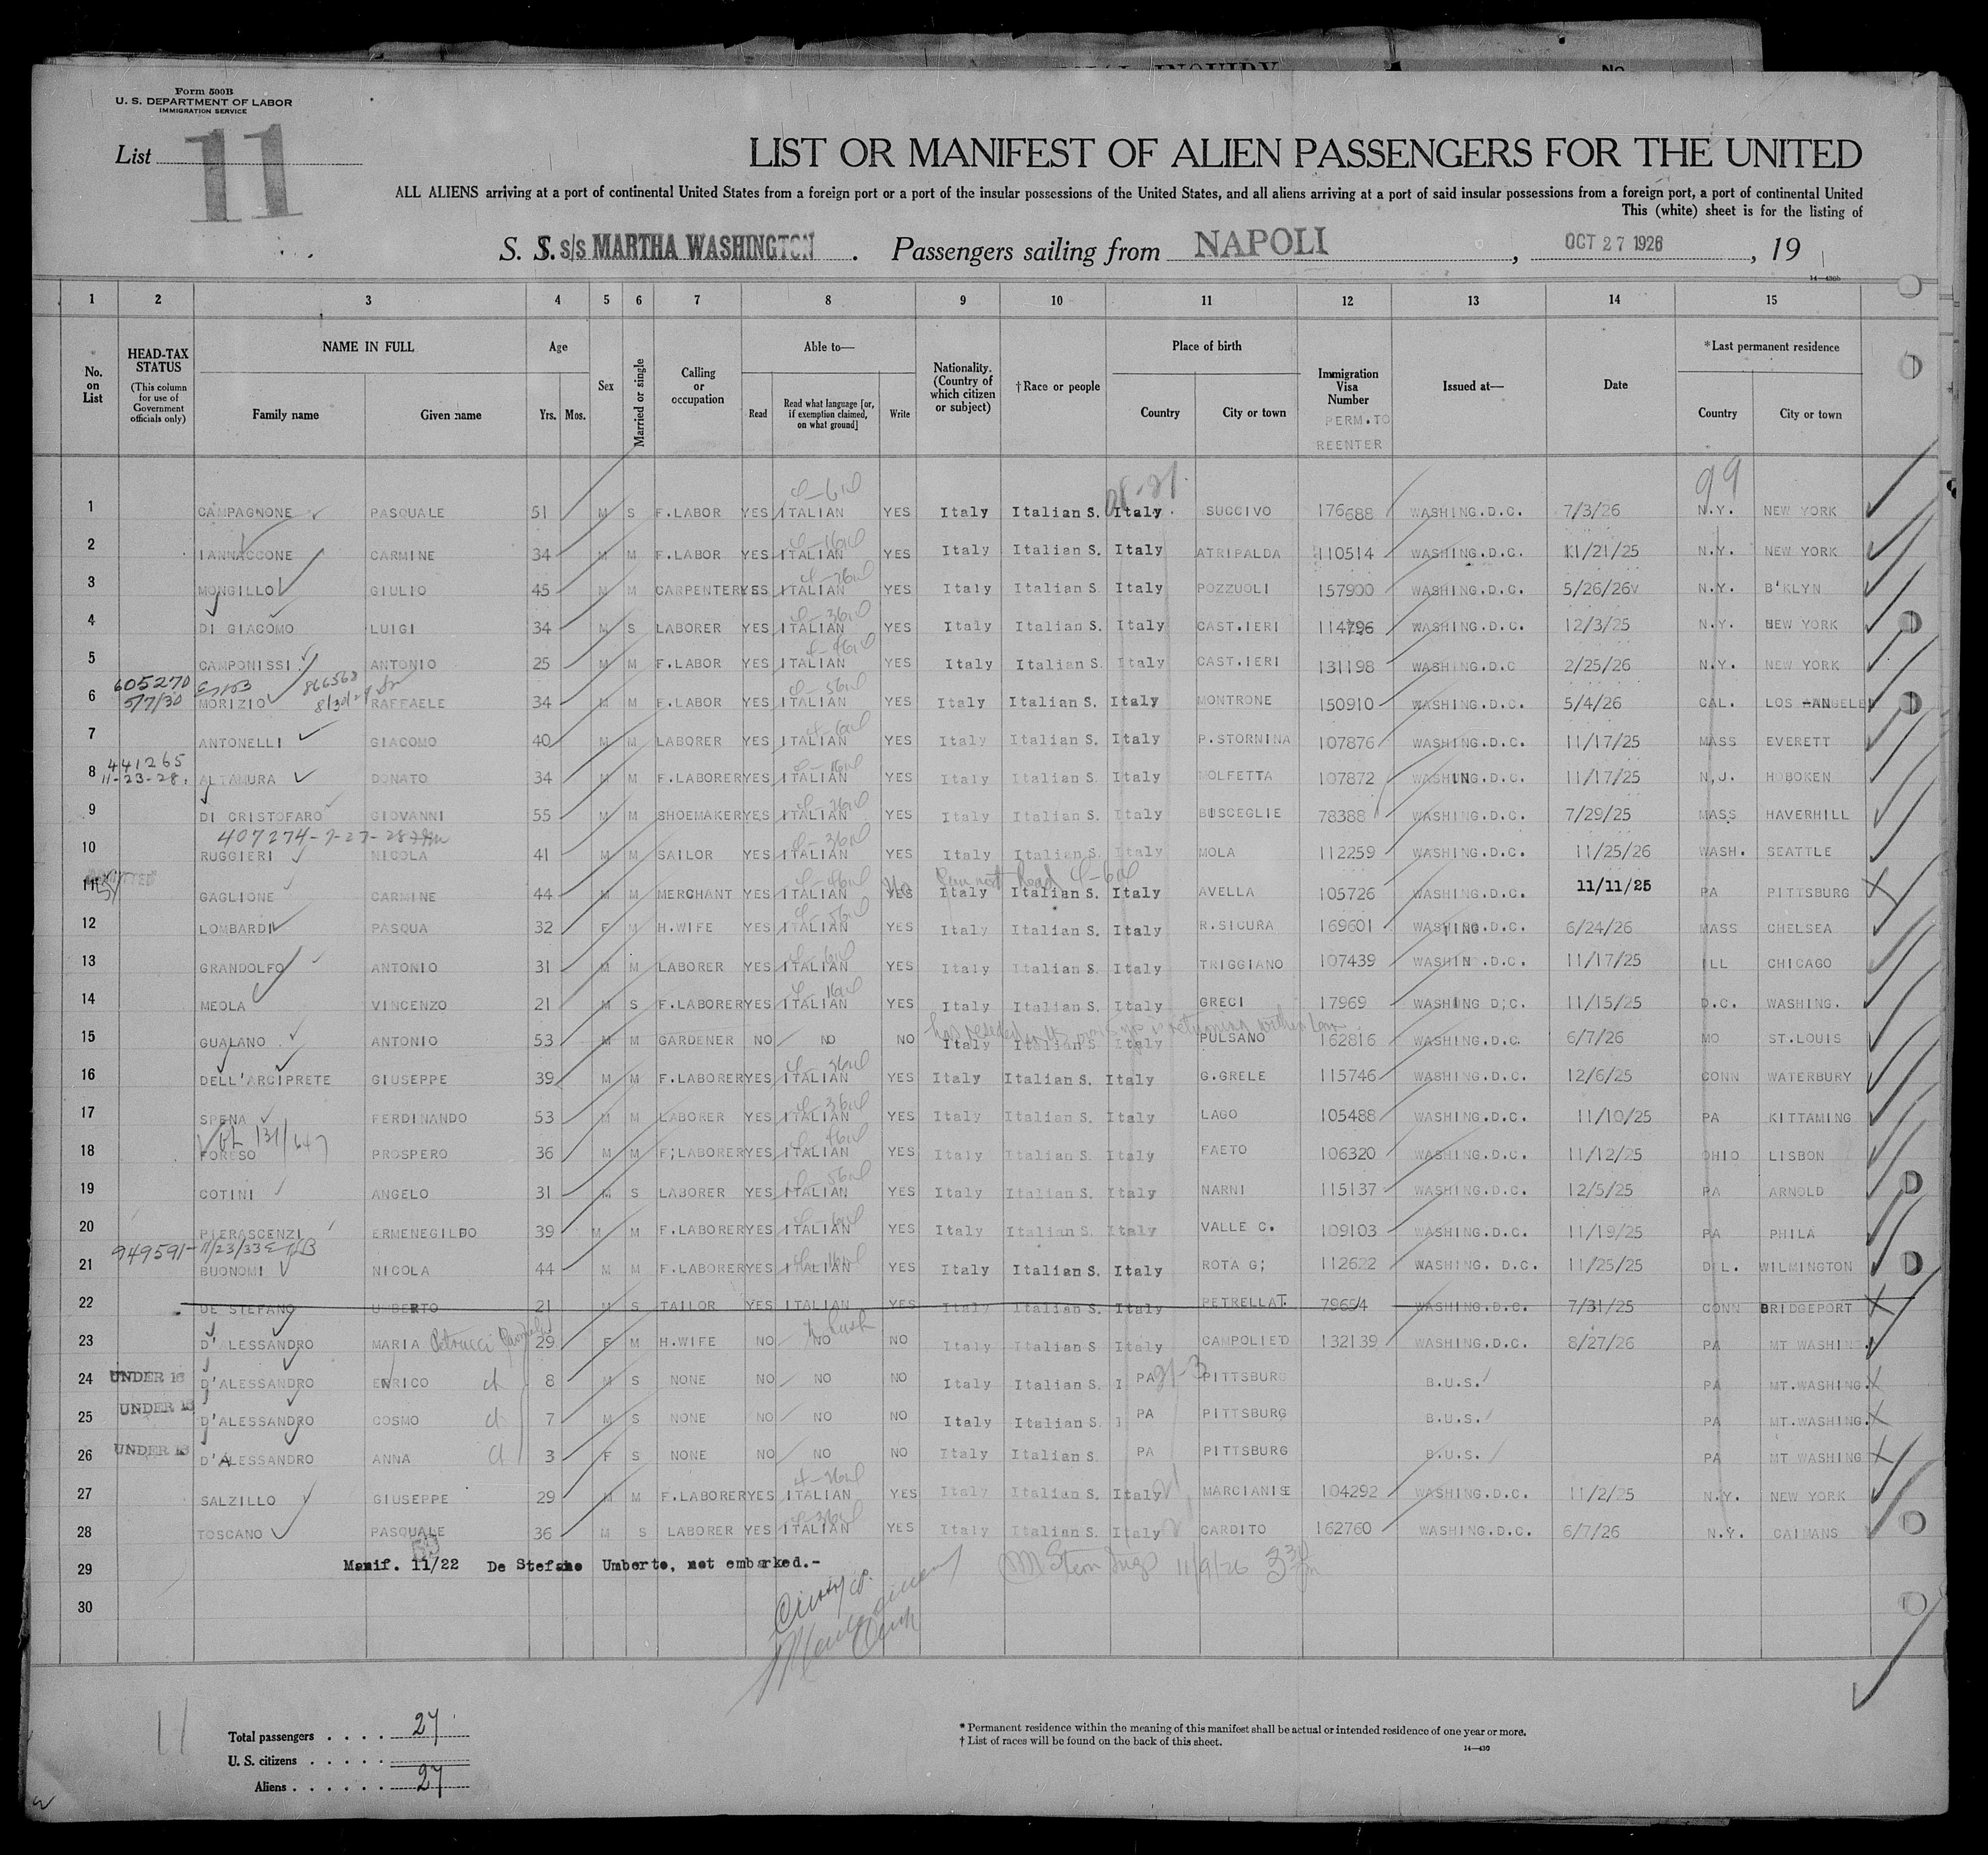 NAL INQUIRY
No.
Form 500B
U. S. DEPARTMENT OF LABOR
IMMIGRATION SERVICE
List 11
LIST OR MANIFEST OF ALIEN PASSENGERS FOR THE UNITED
ALL ALIENS arriving at a port of continental United States from a foreign port or a port of the insular possessions of the United States, and all aliens arriving at a port of said insular possessions from a foreign port, a port of continental United
This (white) sheet is for the listing of
S. S. s/s MARTHA WASHINGTON . Passengers sailing from NAPOLI , OCT 27 1926 , 19
14—430b
1 2 3 4 5 6 7 8 9 10 11 12 13 14 15
No. on List
HEAD-TAX STATUS (This column for use of Government officials only)
NAME IN FULL
Family name Given name
Age
Yrs. Mos.
Sex
Married or single
Calling or occupation
Able to—
Read Read what language [or, if exemption claimed, on what ground] Write
Nationality. (Country of which citizen or subject)
†Race or people
Place of birth
Country City or town
Immigration Visa Number
PERM.TO REENTER
Issued at—
Date
*Last permanent residence
Country City or town
99
1 CAMPAGNONE PASQUALE 51 M S F.LABOR YES ITALIAN YES Italy Italian S. Italy SUCCIVO 176688 WASHING.D.C. 7/3/26 N.Y. NEW YORK
2 IANNACCONE CARMINE 34 M M F.LABOR YES ITALIAN YES Italy Italian S. Italy ATRIPALDA 110514 WASHING.D.C. 11/21/25 N.Y. NEW YORK
3 MONGILLO GIULIO 45 M M CARPENTER YES ITALIAN YES Italy Italian S. Italy POZZUOLI 157900 WASHING.D.C. 5/26/26 N.Y. B'KLYN
4 DI GIACOMO LUIGI 34 M S LABORER YES ITALIAN YES Italy Italian S. Italy CAST.IERI 114796 WASHING.D.C. 12/3/25 N.Y. NEW YORK
5 CAMPONISSI ANTONIO 25 M M F.LABOR YES ITALIAN YES Italy Italian S. Italy CAST.IERI 131198 WASHING.D.C 2/25/26 N.Y. NEW YORK
605270
5/7/30
6 MORIZIO RAFFAELE 34 M M F.LABOR YES ITALIAN YES Italy Italian S. Italy MONTRONE 150910 WASHING.D.C. 5/4/26 CAL. LOS ANGELE
7 ANTONELLI GIACOMO 40 M M LABORER YES ITALIAN YES Italy Italian S. Italy P.STORNINA 107876 WASHING.D.C. 11/17/25 MASS EVERETT
441265
11-23-28.
8 ALTAMURA DONATO 34 M M F.LABORER YES ITALIAN YES Italy Italian S. Italy MOLFETTA 107872 WASHING.D.C. 11/17/25 N.J. HOBOKEN
9 DI CRISTOFARO GIOVANNI 55 M M SHOEMAKER YES ITALIAN YES Italy Italian S. Italy BISCEGLIE 78388 WASHING.D.C. 7/29/25 MASS HAVERHILL
407274-7-27-28
10 RUGGIERI NICOLA 41 M M SAILOR YES ITALIAN YES Italy Italian S. Italy MOLA 112259 WASH.D.C. 11/25/26 WASH. SEATTLE
11 GAGLIONE CARMINE 44 M M MERCHANT YES ITALIAN YES Italy Italian S. Italy AVELLA 105726 WASHING.D.C. 11/11/25 PA PITTSBURG
12 LOMBARDI PASQUA 32 F M H.WIFE YES ITALIAN YES Italy Italian S. Italy R.SICURA 169601 WASHING.D.C. 6/24/26 MASS CHELSEA
13 GRANDOLFO ANTONIO 31 M M LABORER YES ITALIAN YES Italy Italian S. Italy TRIGGIANO 107439 WASHIN .D.C. 11/17/25 ILL CHICAGO
14 MEOLA VINCENZO 21 M S F.LABORER YES ITALIAN YES Italy Italian S. Italy GRECI 17969 WASHING D;C. 11/15/25 D.C. WASHING.
15 GUALANO ANTONIO 53 M M GARDENER NO NO NO Italy Italian S Italy PULSANO 162816 WASHING.D.C. 6/7/26 MO ST.LOUIS
16 DELL'ARCIPRETE GIUSEPPE 39 M M F.LABORER YES ITALIAN YES Italy Italian S. Italy G.GRELE 115746 WASHING.D.C. 12/6/25 CONN WATERBURY
17 SPENA FERDINANDO 53 M M LABORER YES ITALIAN YES Italy Italian S. Italy LAGO 105488 WASHING.D.C. 11/10/25 PA KITTAMING
18 FORESO PROSPERO 36 M M F;LABORER YES ITALIAN YES Italy Italian S. Italy FAETO 106320 WASHING.D.C. 11/12/25 OHIO LISBON
19 COTINI ANGELO 31 M S LABORER YES ITALIAN YES Italy Italian S. Italy NARNI 115137 WASHING.D.C. 12/5/25 PA ARNOLD
20 PIERASCENZI ERMENEGILDO 39 M M F.LABORER YES ITALIAN YES Italy Italian S. Italy VALLE C. 109103 WASHING.D.C. 11/19/25 PA PHILA
949591-11/23/33
21 BUONOMI NICOLA 44 M M F.LABORER YES ITALIAN YES Italy Italian S. Italy ROTA G; 112622 WASHING. D.C. 11/25/25 DEL. WILMINGTON
22 DE STEFANO UMBERTO 21 M S TAILOR YES ITALIAN YES Italy Italian S. Italy PETRELLA T. 79654 WASHING.D.C. 7/31/25 CONN BRIDGEPORT
23 D'ALESSANDRO MARIA Petrucci 29 F M H.WIFE NO NO NO Italy Italian S Italy CAMPOLIETO 132139 WASHING.D.C. 8/27/26 PA MT WASHING.
24 UNDER 16 D'ALESSANDRO ENRICO 8 M S NONE NO NO NO Italy Italian S. PA PITTSBURG B.U.S. PA MT.WASHING.
25 UNDER 16 D'ALESSANDRO COSMO 7 M S NONE NO NO NO Italy Italian S. PA PITTSBURG B.U.S. PA MT.WASHING.
26 UNDER 16 D'ALESSANDRO ANNA 3 F S NONE NO NO NO Italy Italian S. PA PITTSBURG B.U.S. PA MT WASHING
27 SALZILLO GIUSEPPE 29 M M F.LABORER YES ITALIAN YES Italy Italian S. Italy MARCIANISE 104292 WASHING.D.C. 11/2/25 N.Y. NEW YORK
28 TOSCANO PASQUALE 36 M S LABORER YES ITALIAN YES Italy Italian S. Italy CARDITO 162760 WASHING.D.C. 6/7/26 N.Y. CAIMANS
29 Manif. 11/22 De Stefano Umberto, not embarked.- 11/9/26
30
11
Total passengers . . . . 27
U. S. citizens . . . . .
Aliens . . . . . . 27
* Permanent residence within the meaning of this manifest shall be actual or intended residence of one year or more.
† List of races will be found on the back of this sheet.
14—430